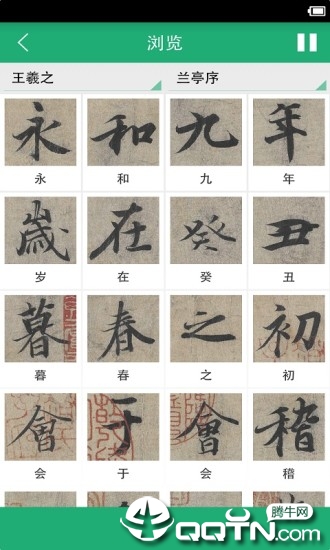 浏览
王羲之 兰亭序
永 和 九 年
永 和 九 年
歲 在 癸 丑
岁 在 癸 丑
暮 春 之 初
暮 春 之 初
會 于 會 稽
会 于 会 稽
腾牛网
QQTN.com